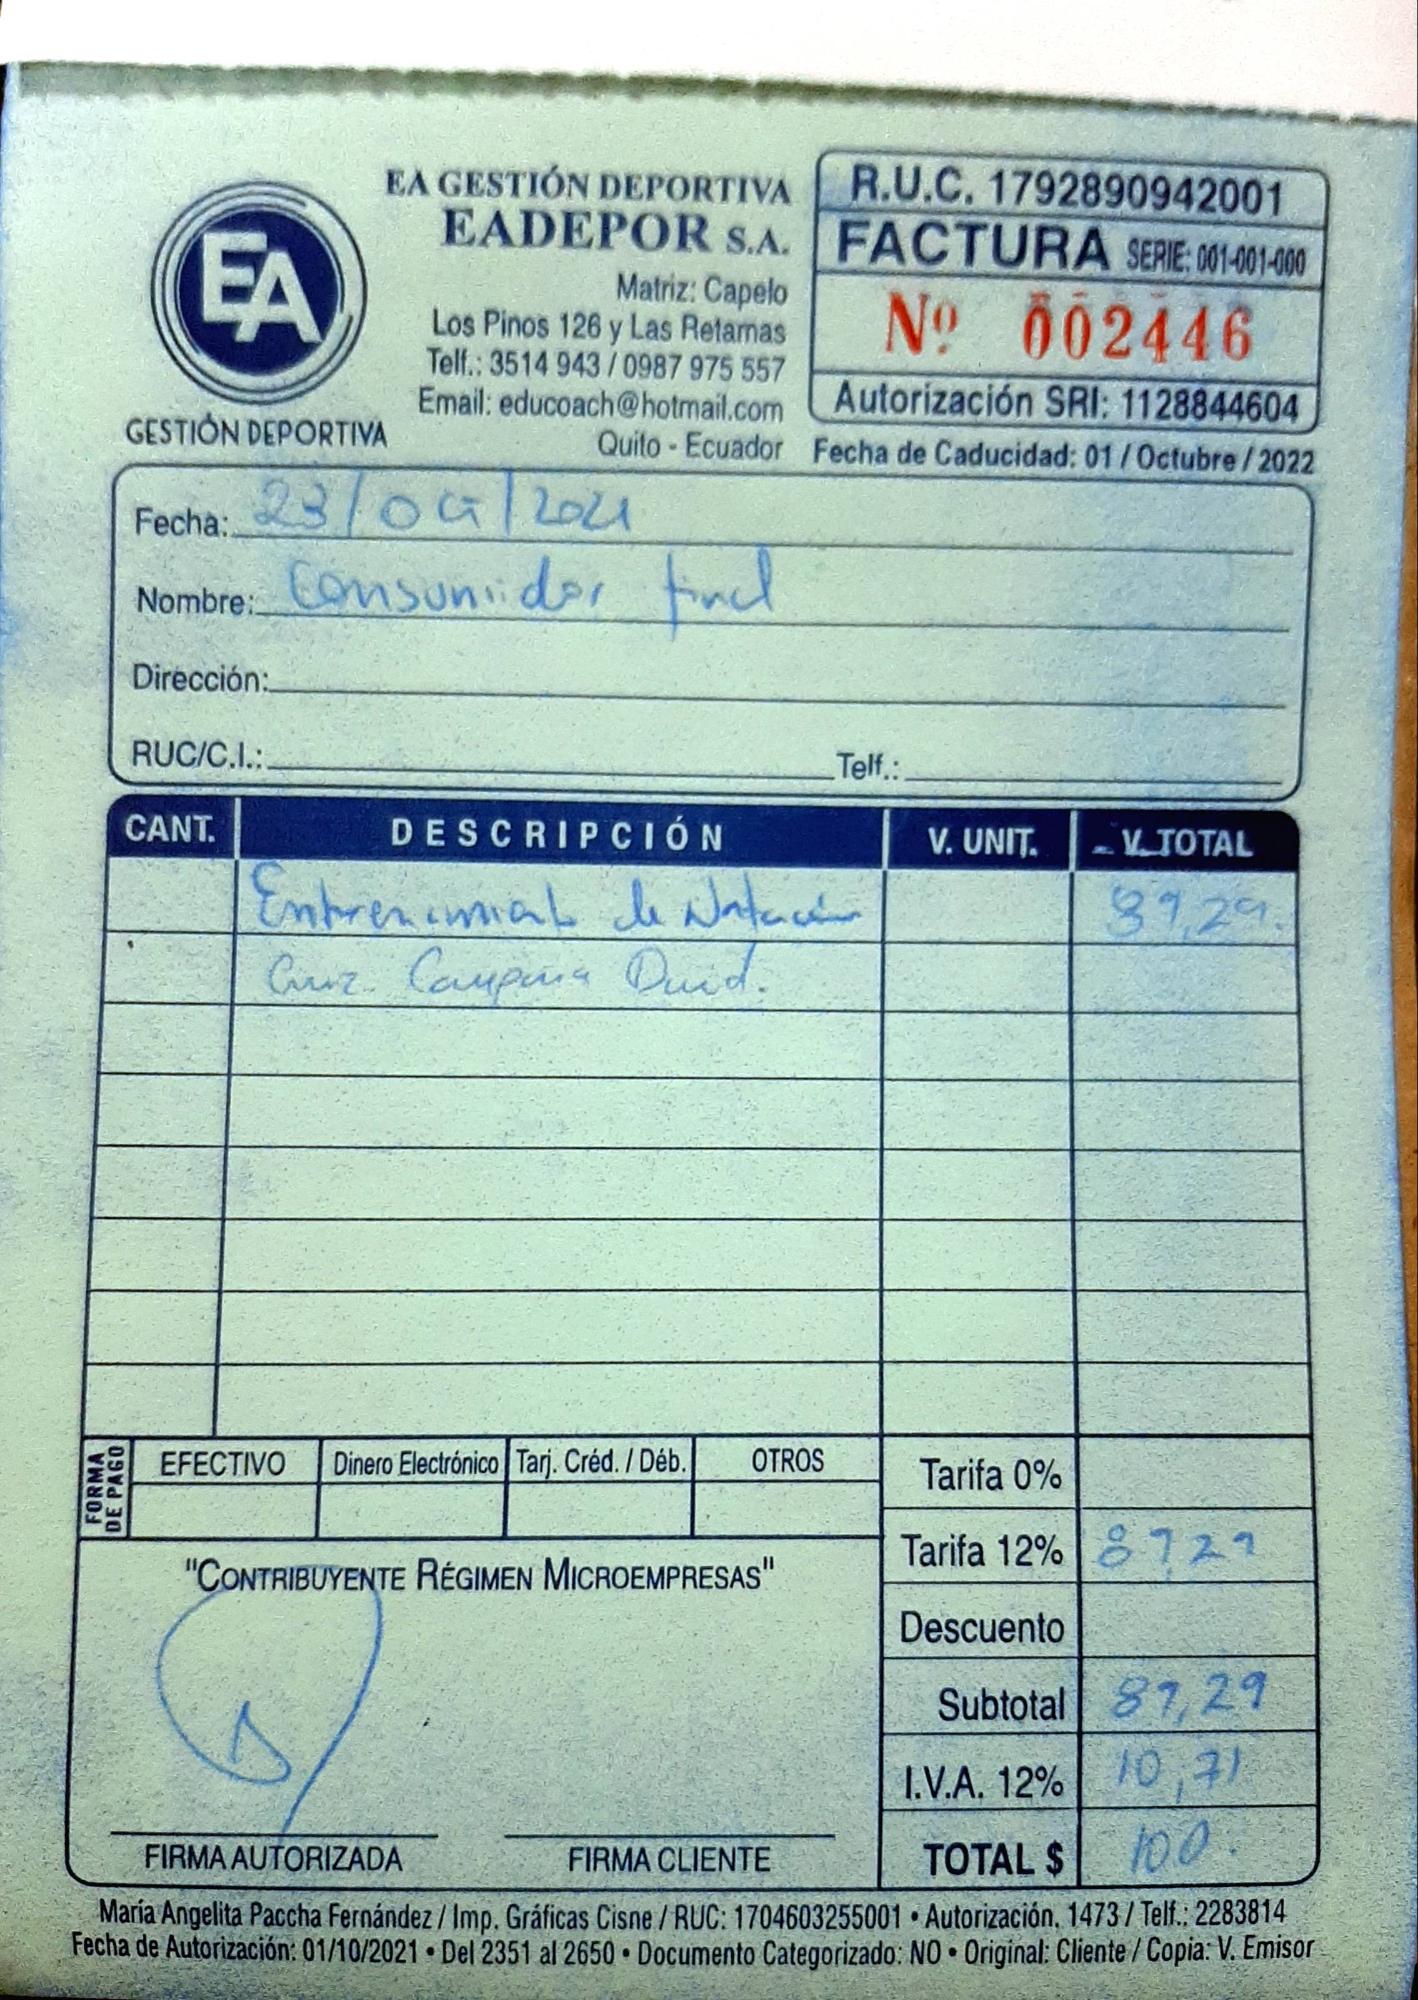 EA
GESTIÓN DEPORTIVA
EA GESTIÓN DEPORTIVA
EADEPOR S.A.
Matriz: Capelo
Los Pinos 126 y Las Retamas
Telf.: 3514 943 / 0987 975 557
Email: educoach@hotmail.com
Quito - Ecuador
R.U.C. 1792890942001
FACTURA SERIE: 001-001-000
Nº 002446
Autorización SRI: 1128844604
Fecha de Caducidad: 01 / Octubre / 2022
Fecha: 23/oct/2021
Nombre: Consumidor final
Dirección:
RUC/C.I.: Telf.:
CANT. DESCRIPCIÓN V. UNIT. V. TOTAL
Entrenamiento de Natación 89,29.
Cruz Campaña David.
FORMA DE PAGO
EFECTIVO Dinero Electrónico Tarj. Créd. / Déb. OTROS
Tarifa 0%
Tarifa 12% 8929
Descuento
Subtotal 89,29
I.V.A. 12% 10,71
TOTAL $ 100.
"CONTRIBUYENTE RÉGIMEN MICROEMPRESAS"
FIRMA AUTORIZADA FIRMA CLIENTE
María Angelita Paccha Fernández / Imp. Gráficas Cisne / RUC: 1704603255001 • Autorización. 1473 / Telf.: 2283814
Fecha de Autorización: 01/10/2021 • Del 2351 al 2650 • Documento Categorizado: NO • Original: Cliente / Copia: V. Emisor